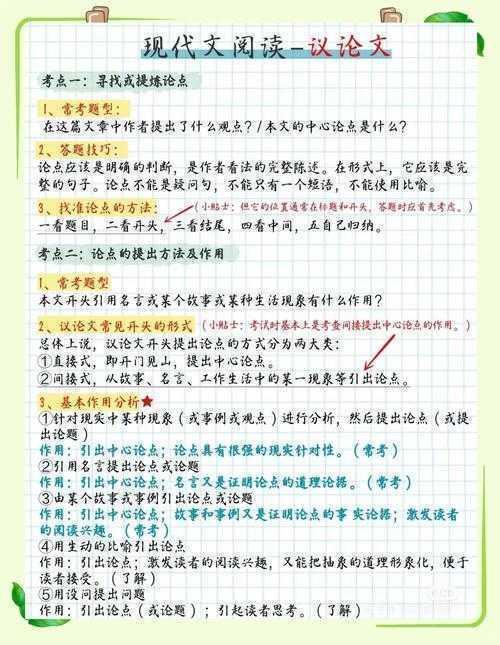 现代文阅读-议论文
考点一：寻找或提炼论点
1、常考题型：
在这篇文章中作者提出了什么观点?/本文的中心论点是什么?
2、答题技巧：
论点应该是明确的判断，是作者看法的完整陈述。在形式上，它应该是完
整的句子。论点不能是疑问句，不能只有一个短语，不能使用比喻。
3、找准论点的方法：（小贴士：但它的位置通常在标题和开头，答题时应首先考虑。）
一看题目，二看开头，三看结尾，四看中间，五自己归纳。
考点二：论点的提出方法及作用
1、常考题型
本文开头引用名言或某个故事或某种生活现象有什么作用?
2、议论文常见开头的形式（小贴士：考试时基本上是考查间接提出中心论点的作用。）
总体上说，议论文开头提出论点的方式分为两大类：
①直接式，即开门见山，提出中心论点。
②间接式，从故事、名言、工作生活中的某一现象等引出论点。
3、基本作用分析★
①针对现实中某种现象（或事例或观点）进行分析，然后提出论点（或提
出论题）
作用：引出中心论点；论点具有很强的现实针对性。（常考）
②引用名言提出论点或论题
作用：引出中心论点；名言又是证明论点的道理论据。（常考）
③由某个故事或事例引出论点或论题
作用：引出中心论点；故事和事例又是证明论点的事 实论据；激发读者
的阅读兴趣。（常考）
④用生动的比喻引出论点
作用：引出论点；激发读者的阅读兴趣，又能把抽象的道理形象化，便于
读者接受。（了解）
⑤用设问提出问题
作用：引出论点（或论题）；引起读者思考。（了解）